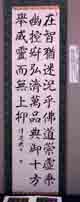 在智猶迷況乎佛道崇虛乘
幽控寂弘濟萬品典御十方
舉威靈而無上抑